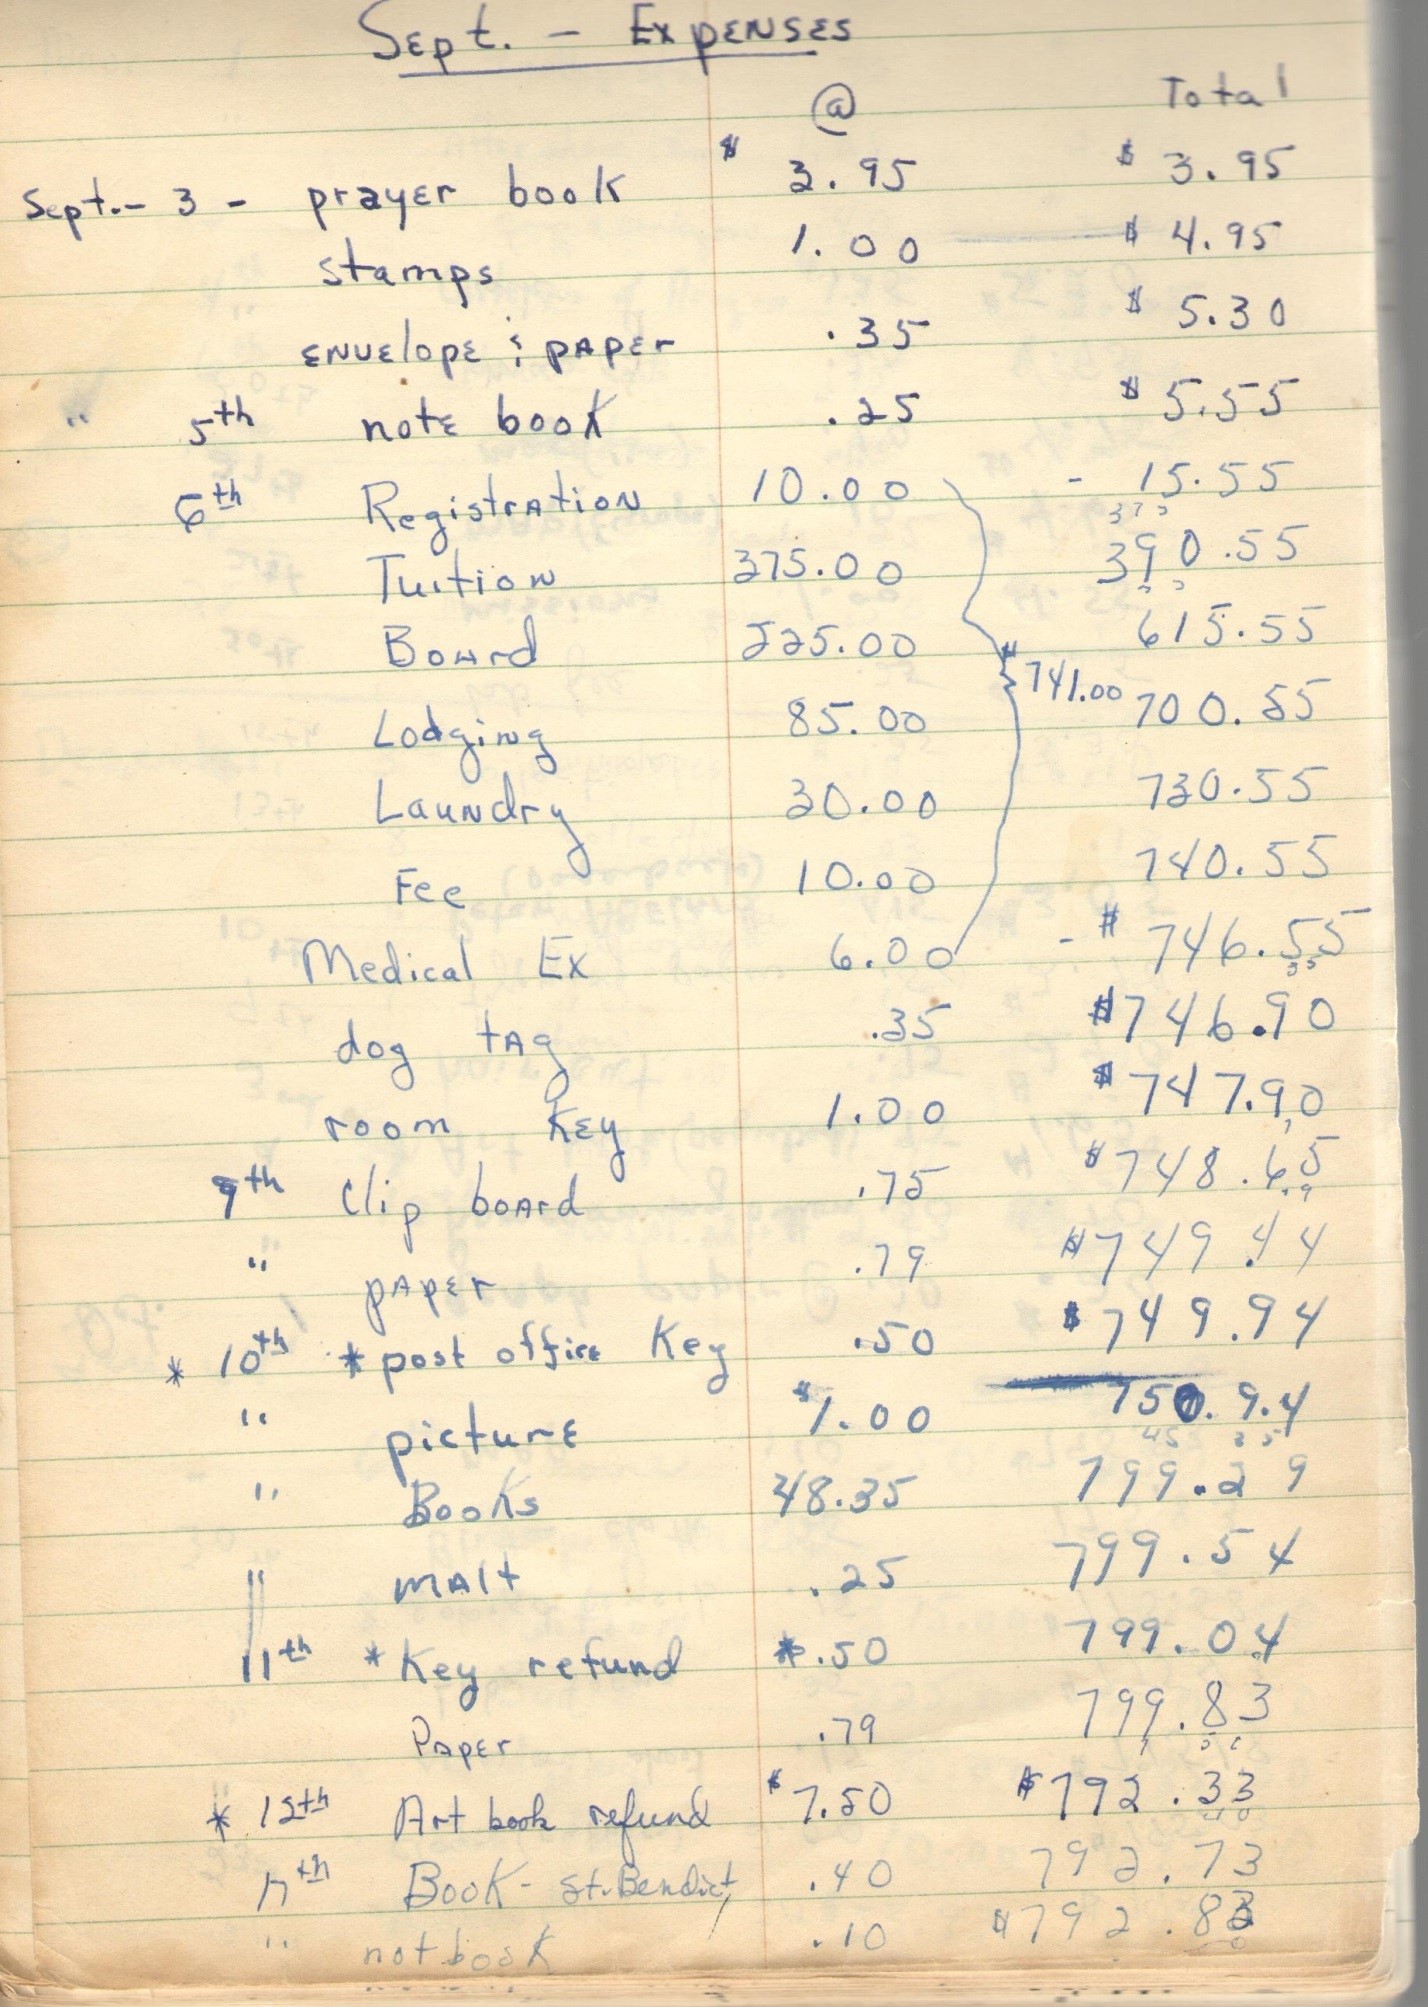 Sept. - Expenses
@ Total
Sept. - 3 - prayer book $ 3.95 $ 3.95
stamps 1.00 $ 4.95
envelope & paper .35 $ 5.30
" 5th note book .25 $ 5.55
6th Registration 10.00 - 15.55
Tuition 375.00 390.55
Board 225.00 615.55
$741.00
Lodging 85.00 700.55
Laundry 30.00 730.55
Fee 10.00 740.55
Medical Ex 6.00 - $ 746.55
dog tag .35 $746.90
room key 1.00 $747.90
9th Clip board .75 $748.65
" paper .79 $749.44
* 10th * post office key .50 $749.94
" picture $1.00 750.94
" Books 48.35 799.29
" malt .25 799.54
11th * Key refund *.50 799.04
Paper .79 799.83
* 12th Art book refund $7.50 $792.33
17th Book - St. Bendict .40 792.73
" notbook .10 $792.83